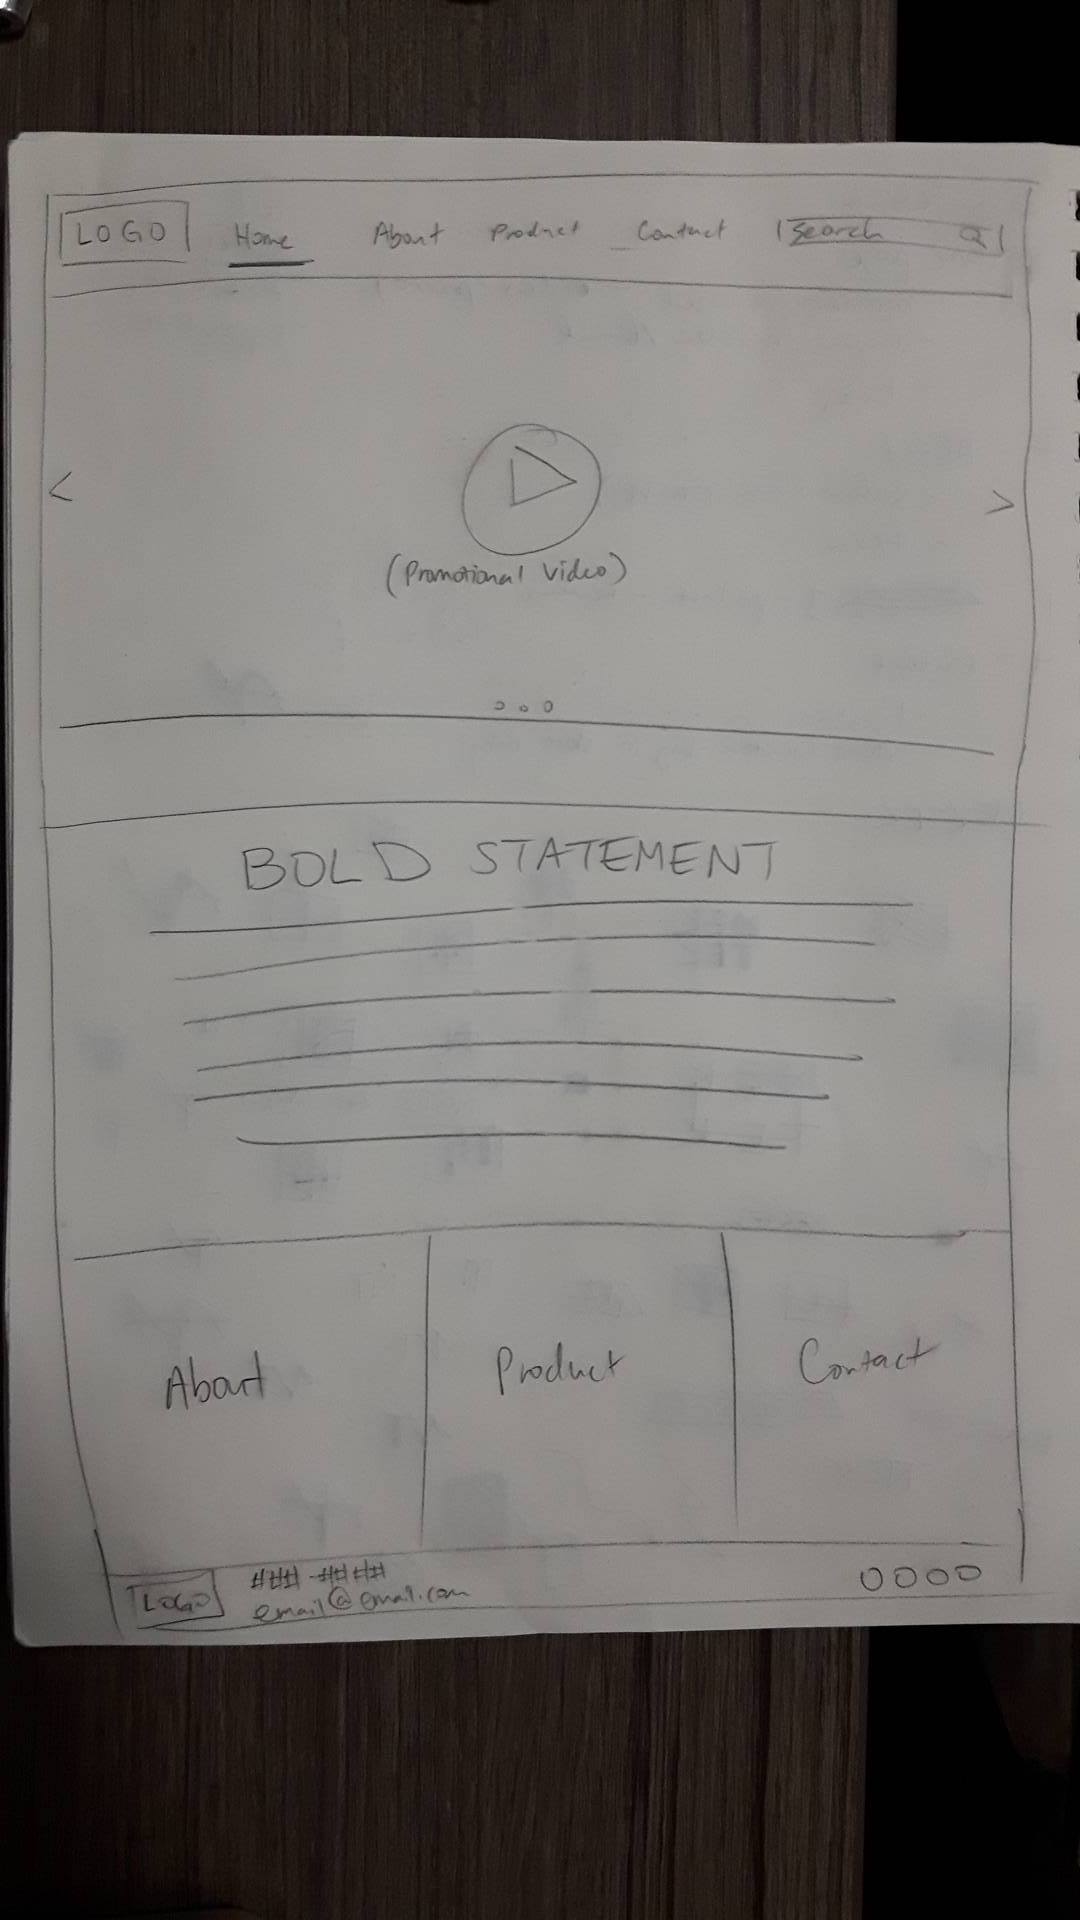 LOGO Home About Product Contact Search
(Promotional Video)
BOLD STATEMENT
About Product Contact
LOGO ###-####
email@email.com